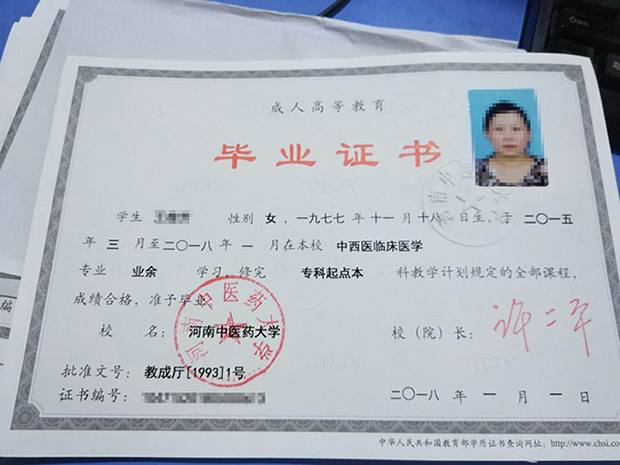 成人高等教育
毕业证书
学生 性别 女，一九七七年十一月十八日生，于二〇一五
年三月至二〇一八年一月在本校 中西医临床医学
专业 业余 学习，修完 专科起点本 科教学计划规定的全部课程，
成绩合格，准予毕业。
校 名：河南中医药大学 校（院）长：许二平
批准文号：教成厅[1993]1号
证书编号： 二〇一八年一月一日
中华人民共和国教育部学历证书查询网址：http://www.chsi.com